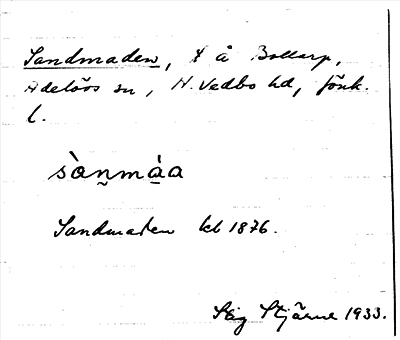 Sandmaden, ł å Bollarp,
Adelövs sn, N. Vedbo hd, Jönk.
l.
sàn̰má̱a
Sandmaden kb 1876.
Stig Stjärne 1933.